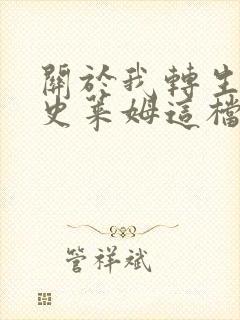 關於我轉生
史萊姆這檔
管祥斌